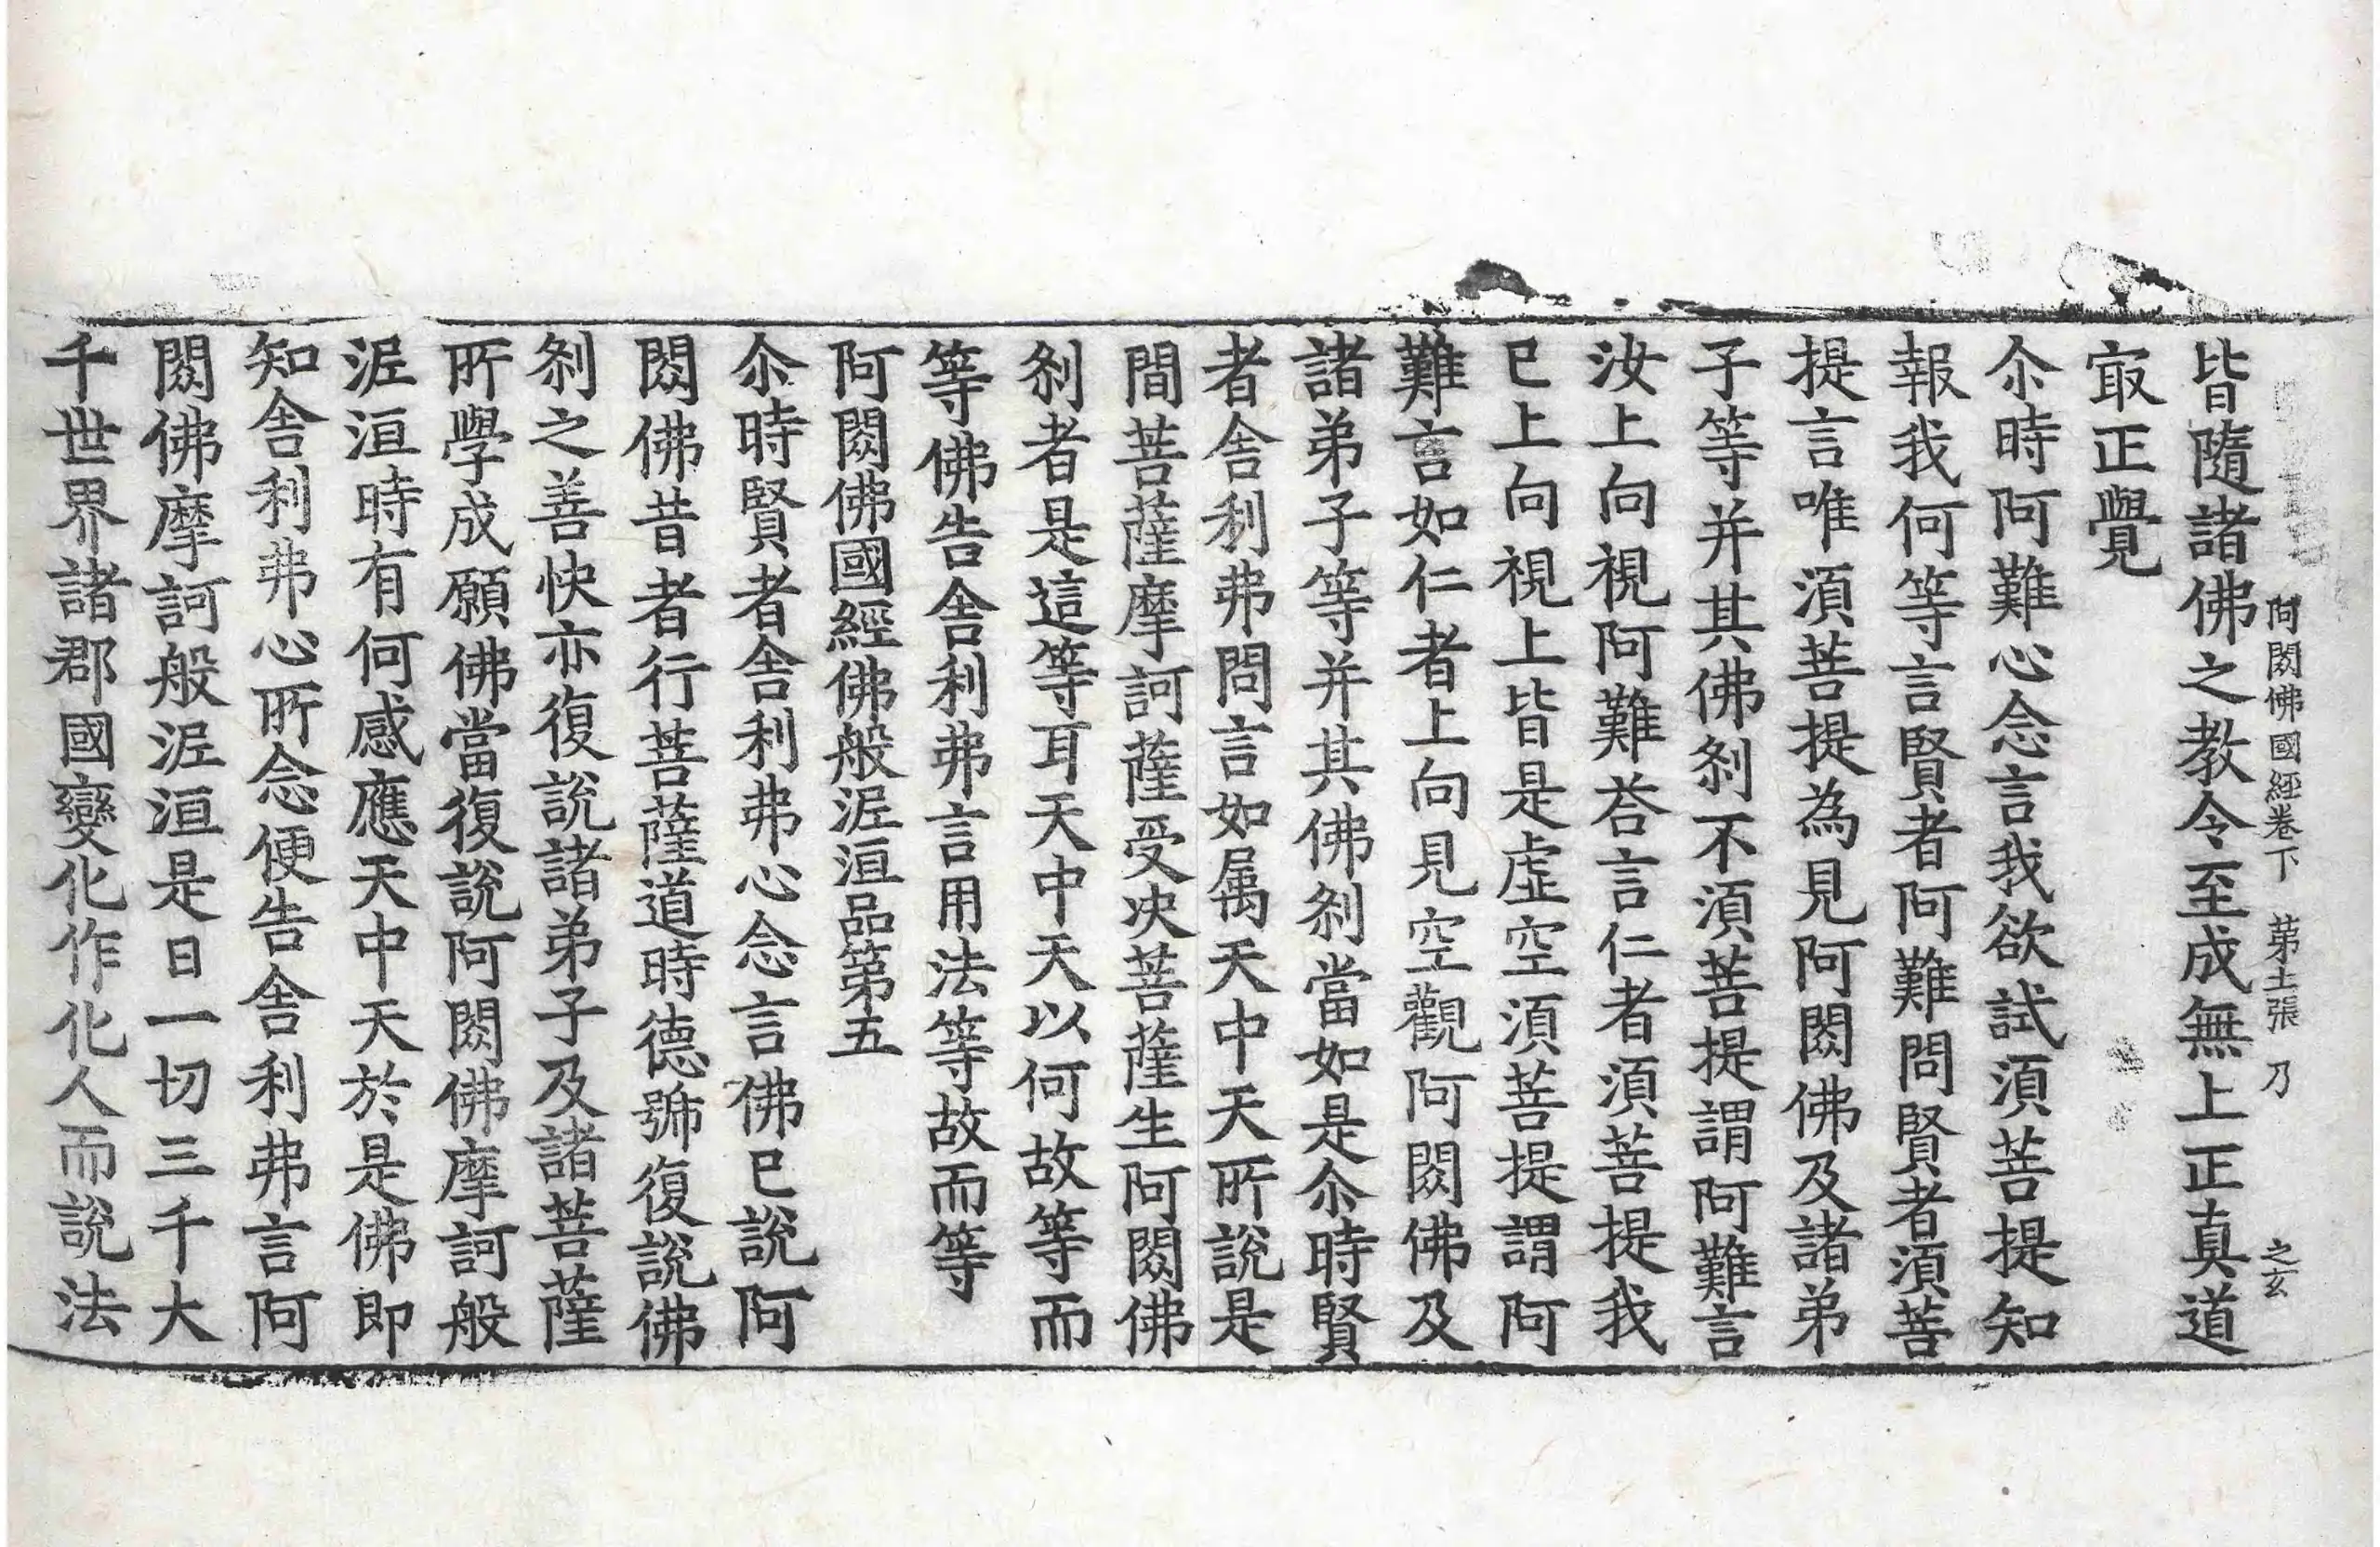 阿閦佛國經卷下 第十一張 乃 之玄
皆隨諸佛之教令至成無上正真道
冣正覺
尒時阿難心念言我欲試湏菩提知
報我何等言賢者阿難問賢者湏菩
提言唯湏菩提為見阿閦佛及諸弟
子等并其佛剎不湏菩提謂阿難言
汝上向視阿難荅言仁者湏菩提我
已上向視上皆是虛空湏菩提謂阿
難言如仁者上向見空觀阿閦佛及
諸弟子等并其佛剎當如是尒時賢
者舍利弗問言如属天中天所說是
間菩薩摩訶薩受决菩薩生阿閦佛
剎者是這等耳天中天以何故等而
等佛告舍利弗言用法等故而等
阿閦佛國經佛般泥洹品第五
尒時賢者舍利弗心念言佛已說阿
閦佛昔者行菩薩道時德號復說佛
剎之善快亦復說諸弟子及諸菩薩
所學成願佛當復說阿閦佛摩訶般
泥洹時有何感應天中天於是佛即
知舍利弗心所念便告舍利弗言阿
閦佛摩訶般泥洹是日一切三千大
千世界諸郡國變化作化人而說法